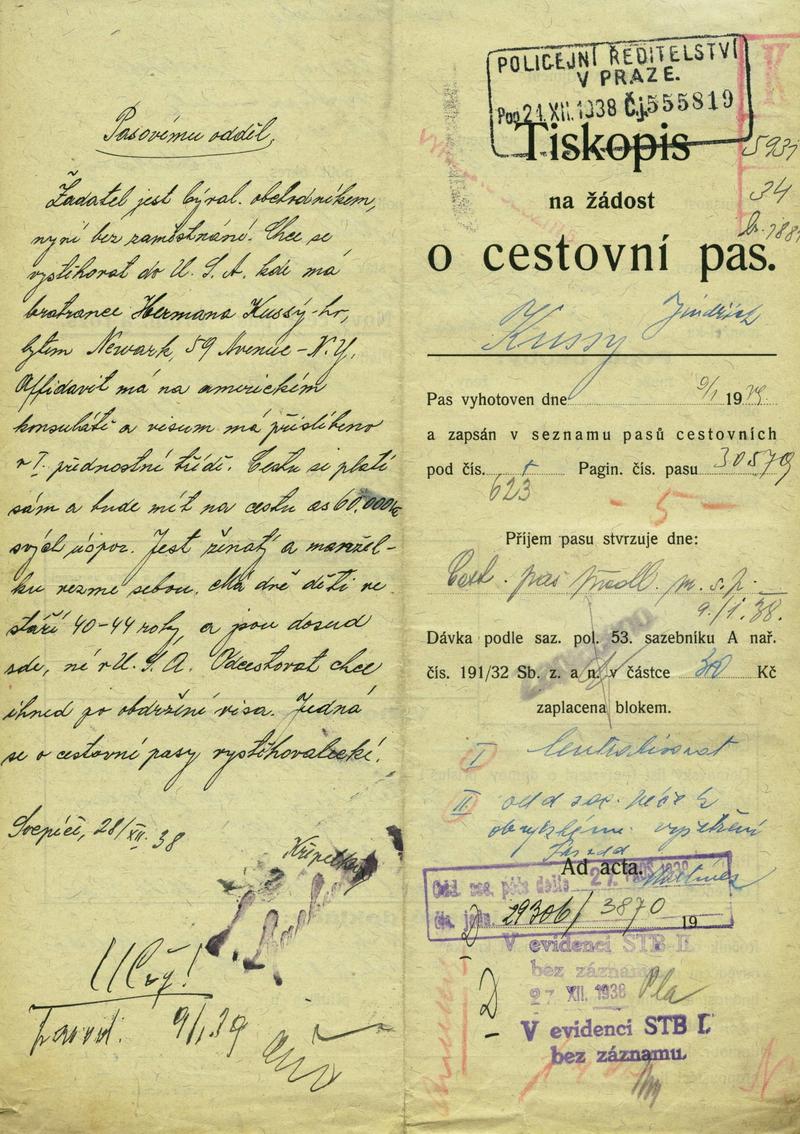 Pasovímu odděl,
Žadatel jest býval. obchodníkem,
nyní bez zaměstnání. Chce se
vystěhovat do U. S. A. kde má
bratrance Hermana Kussý-ho,
bytem Newark, 59 Avenue - N. Y.
Affidavit má na americkém
konsuláti a visum má přislíbeno
v I. přednostní třídě. Cestu si platí
sám a bude mít na cestu as 60.000 Kč
svých úspor. Jest ženatý a manžel-
ku vezme sebou. Má dvě děti ve
stáří 40-44 roky, a jsou dosud
zde, né v U. S. A. Odcestovat chce
ihned po obdržení visa. Jedná
se o cestovní pasy vystěhovalecké.
28/XII. 38
9/1.39
POLICEJNÍ ŘEDITELSTVÍ
V PRAZE.
21. XII. 1938 Č.j. 555819
K
Tiskopis
5931
34
na žádost
o cestovní pas.
Kussy Jindřich
Pas vyhotoven dne 9/1 1939
a zapsán v seznamu pasů cestovních
pod čís. 623 Pagin. čís. pasu 30579
- 5 -
Příjem pasu stvrzuje dne:
Cest. pas
9./1. 38.
Dávka podle saz. pol. 53. sazebníku A nař.
čís. 191/32 Sb. z. a n. v částce 30 Kč
zaplacena blokem.
I Centralisovat
II odd soc. péče k
obvyklému vyšetření
Ad acta.
Odd. soc. péče došlo 27. PROS. 1938
čís. jedn. 29306/3870 19
V evidenci STB II.
bez záznamu
27 XII. 1938
- D
V evidenci STB I.
bez záznamu.
N